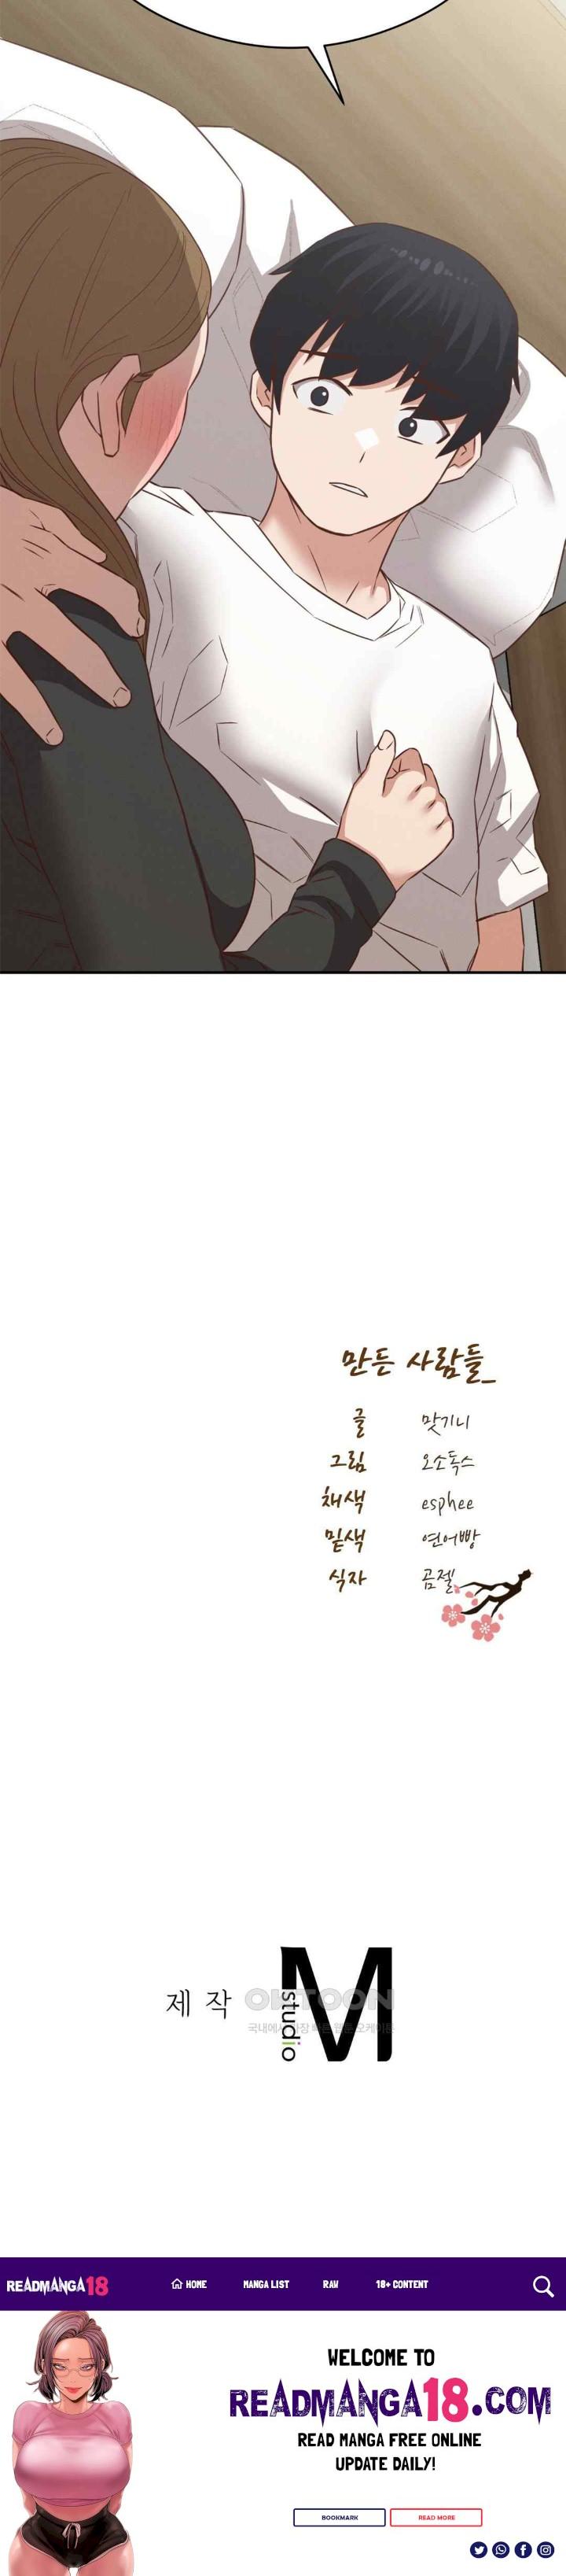 만든 사람들
글 맛기니
그림 오소독스
채색 esphee
밑색 연어빵
식자 곰젤
제작
OKTOON
국내에서 가장 빠른 웹툰 오케이툰
M
studio
READMANGA18
HOME MANGA LIST RAW 18+ CONTENT
WELCOME TO
READMANGA18.COM
READ MANGA FREE ONLINE
UPDATE DAILY!
BOOKMARK READ MORE